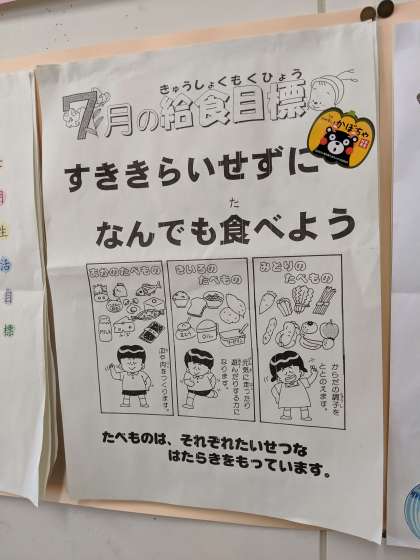 きゅうしょくもくひょう
7月の給食目標
かぼちゃ
すききらいせずに
た
なんでも食べよう
あかのたべもの
きいろの
たべもの
みどりの
たべもの
MILK
血や肉をつくります。
元気に走ったり
遊んだりする力に
なります。
からだの調子を
ととのえます。
たべものは、それぞれたいせつな
はたらきをもっています。
生
活
目
標